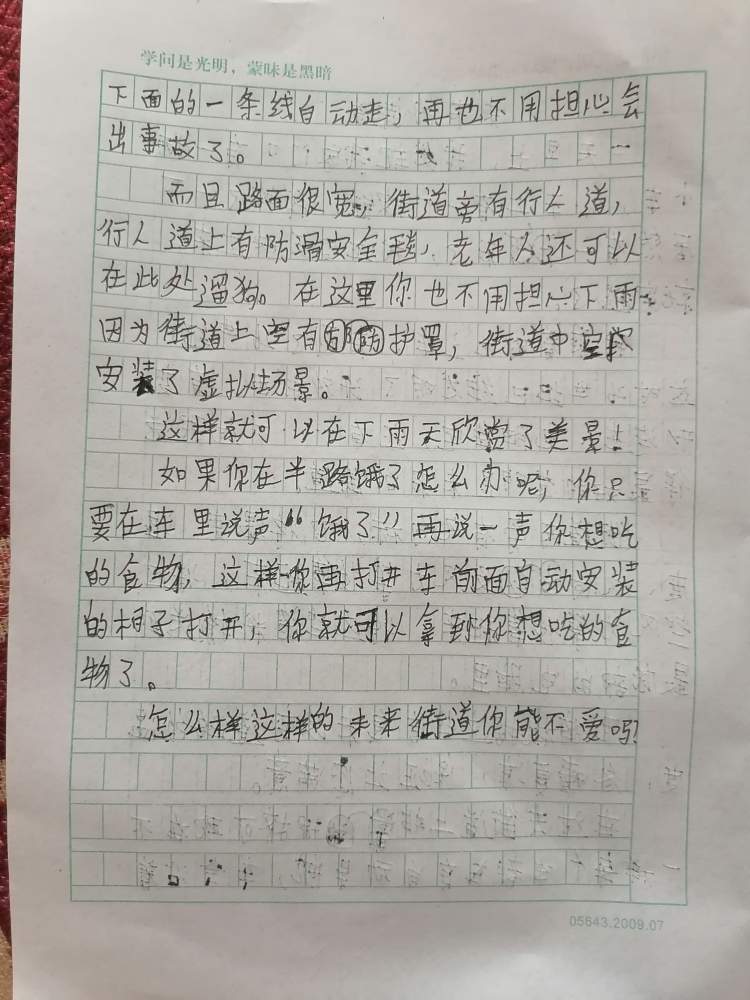 学问是光明，蒙昧是黑暗
下面的一条线自动走，再也不用担心会
出事故了。
而且路面很宽，街道旁有行人道，
行人道上有防滑安全毯，老年人还可以
在此处遛狗。在这里你也不用担心下雨
因为街道上空有防护罩，街道中空
安装了虚扎场景。
这样就可以在下雨天欣赏了美景！
如果你在半路饿了怎么办呢，你只
要在车里说声“饿了”再说一声你想吃
的食物，这样你再打开车前面自动安装
的相子打开，你就可以拿到你想吃的食
物了。
怎么样这样的未来街道你能不爱吗？
05643.2009.07